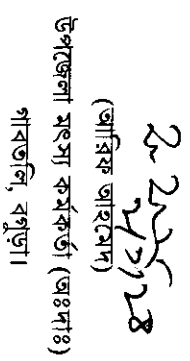 (আরিক আহমেদ)
উপজেলা মৎস্য কর্মকর্তা (অঃদাঃ)
গাবতলি, বগুড়া।